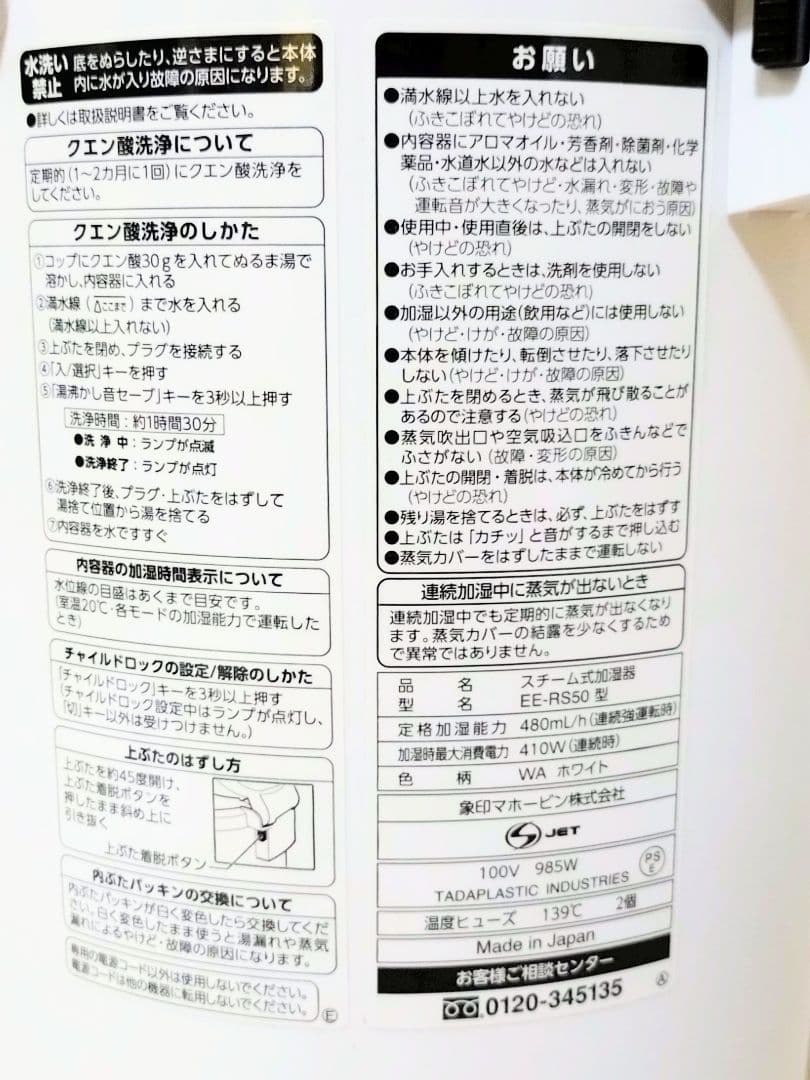 水洗い
禁止
底をぬらしたり、逆さまにすると本体
内に水が入り故障の原因になります。
●詳しくは取扱説明書をご覧ください。
クエン酸洗浄について
定期的(1〜2カ月に1回)にクエン酸洗浄を
してください。
クエン酸洗浄のしかた
①コップにクエン酸30gを入れてぬるま湯で
溶かし、内容器に入れる
②満水線(△ここまで)まで水を入れる
(満水線以上入れない)
③上ぶたを閉め、プラグを接続する
④「入/選択」キーを押す
⑤「湯沸かし音セーブ」キーを3秒以上押す
洗浄時間:約1時間30分
●洗浄中:ランプが点滅
●洗浄終了:ランプが点灯
⑥洗浄終了後、プラグ・上ぶたをはずして
湯捨て位置から湯を捨てる
⑦内容器を水ですすぐ
内容器の加湿時間表示について
水位線の目盛はあくまで目安です。
(室温20℃・各モードの加湿能力で運転した
とき)
チャイルドロックの設定/解除のしかた
「チャイルドロック」キーを3秒以上押す
(チャイルドロック設定中はランプが点灯し、
「切」キー以外は受けつけません。)
上ぶたのはずし方
上ぶたを約45度開け、
上ぶた着脱ボタンを
押したまま斜め上に
引き抜く
上ぶた着脱ボタン
内ぶたパッキンの交換について
内ぶたパッキンが白く変色したら交換してくだ
さい。白く変色したまま使うと湯漏れや蒸気
漏れによるやけど・故障の原因になります。
専用の電源コード以外は使用しないでください。
電源コードは他の機器に転用しないでください。
E
お願い
●満水線以上水を入れない
(ふきこぼれてやけどの恐れ)
●内容器にアロマオイル・芳香剤・除菌剤・化学
薬品・水道水以外の水などは入れない
(ふきこぼれてやけど・水漏れ・変形・故障や
運転音が大きくなったり、蒸気がにおう原因)
●使用中・使用直後は、上ぶたの開閉をしない
(やけどの恐れ)
●お手入れするときは、洗剤を使用しない
(ふきこぼれてやけどの恐れ)
●加湿以外の用途(飲用など)には使用しない
(やけど・けが・故障の原因)
●本体を傾けたり、転倒させたり、落下させたり
しない(やけど・けが・故障の原因)
●上ぶたを閉めるとき、蒸気が飛び散ることが
あるので注意する(やけどの恐れ)
●蒸気吹出口や空気吸込口をふきんなどで
ふさがない(故障・変形の原因)
●上ぶたの開閉・着脱は、本体が冷めてから行う
(やけどの恐れ)
●残り湯を捨てるときは、必ず、上ぶたをはずす
●上ぶたは「カチッ」と音がするまで押し込む
●蒸気カバーをはずしたままで運転しない
連続加湿中に蒸気が出ないとき
連続加湿中でも定期的に蒸気が出なくなり
ます。蒸気カバーの結露を少なくするため
で異常ではありません。
品名 スチーム式加湿器
型名 EE-RS50 型
定格加湿能力 480mL/h(連続強運転時)
加湿時最大消費電力 410W(連続時)
色柄 WA ホワイト
象印マホービン株式会社
JET
100V 985W
PSE
TADAPLASTIC INDUSTRIES
温度ヒューズ 139℃ 2個
Made in Japan
お客様ご相談センター
0120-345135
A